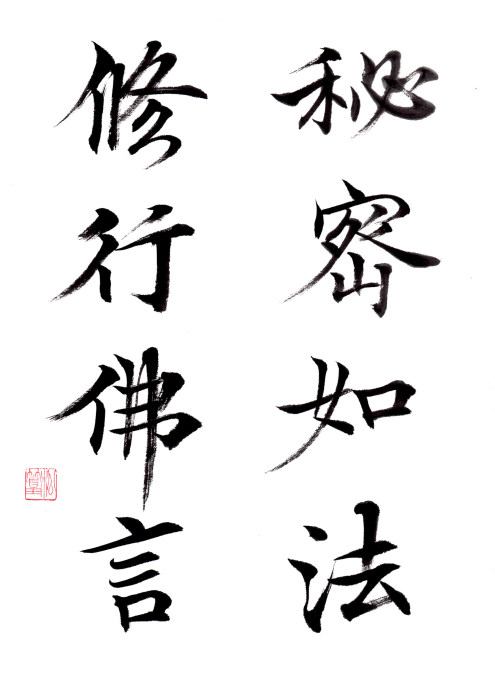 秘密如法
修行佛言